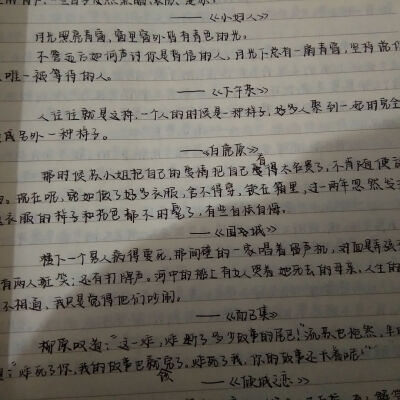 ——《小妇人》
月光照亮青窗，窗里窗外皆有青色的光。
不管远方如何声讨你是背信的人，月光下总有一扇青窗，坚持说你
唯一被等待的人。
——《下午茶》
人往往就是这种，一个人的时候是一种样子，好多人聚到一起的完全
成另外一种样子。
——《白鹿原》
那时候苏小姐把自己的爱情把自己看得太名贵了，不肯随便
的。现在呢，宛如做了好多衣服，舍不得穿，锁在箱里，过一两年忽然发
衣服的样子和花色都不时髦了，有些自怅自悔。
——《围城》
楼下一个男人病得要死，那间壁的一家唱着留声机，对面是弄孩
有两人狂笑；还有打牌声。河中的船上有女人哭着她死去的母亲，人生的
不相通，我只觉得他们吵闹。
——《而已集》
柳原叹道：“这一炸，炸断了多少故事的尾巴！”流苏也怆然，半
：“炸死了你，我的故事也就完了。炸死了我，你的故事还长着呢！”
——《倾城之恋》